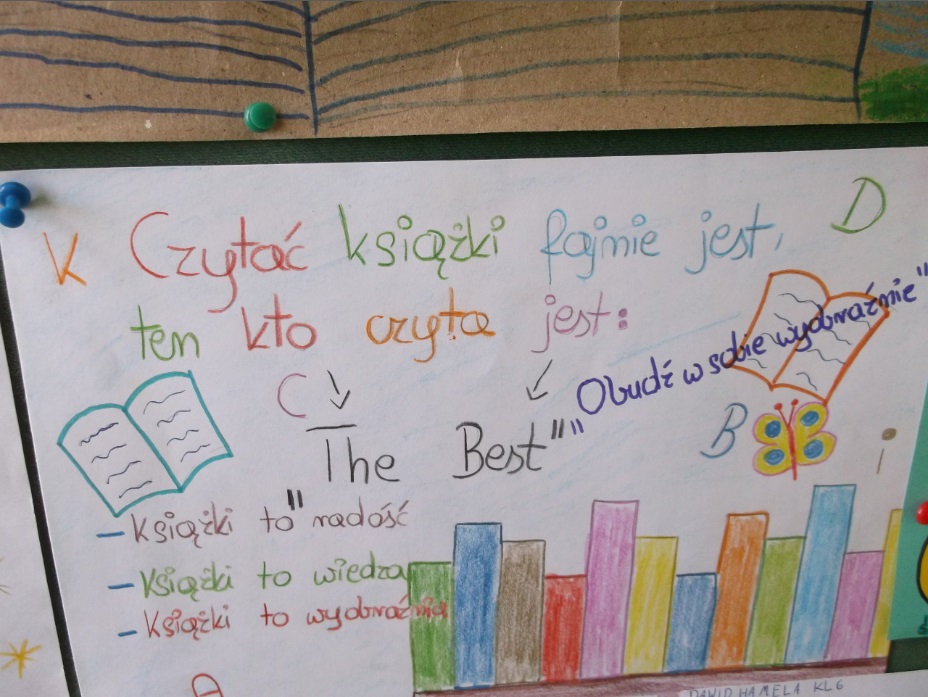 K Czytać książki fajnie jest, D
ten kto czyta jest:
"Obudź w sobie wyobraźnie"
C
The Best"
B
i
– Książki to "radość
– Książki to wiedza
– Książki to wyobraźnia
A
DAWID HAMELA KL 6